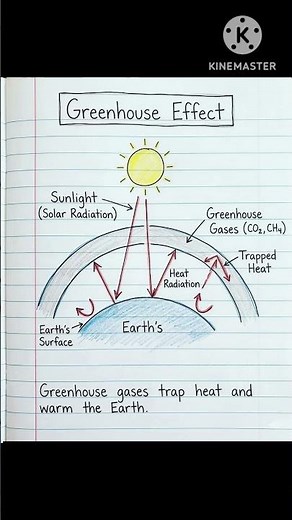 KINEMASTER
Greenhouse Effect
Sunlight
(Solar Radiation)
Greenhouse
Gases (CO₂, CH₄)
Trapped
Heat
Heat
Radiation
Earth's
Surface
Earth's
Greenhouse gases trap heat and
warm the Earth.